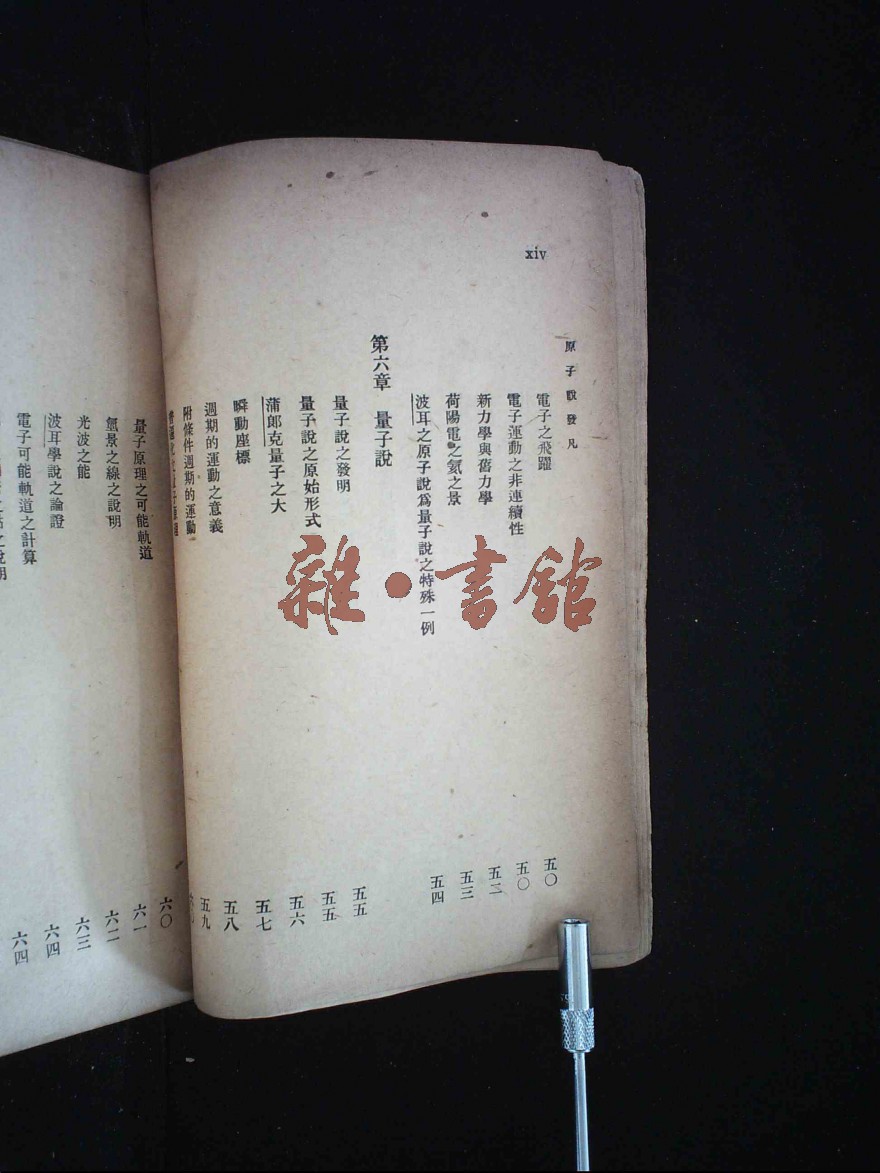 xiv
原子說發凡
電子之飛躍 五〇
電子運動之非連續性 五〇
新力學與舊力學 五二
荷陽電之氦之景 五三
波耳之原子說為量子說之特殊一例 五四
第六章 量子說 五五
量子說之發明 五五
量子說之原始形式 五六
蒲郎克量子之大 五七
瞬動座標 五八
週期的運動之意義 五九
附條件週期的運動
量子原理之可能軌道 六〇
氫景之線之說明 六一
光波之能 六二
波耳學說之論證 六三
電子可能軌道之計算 六四
六四
雜·書館